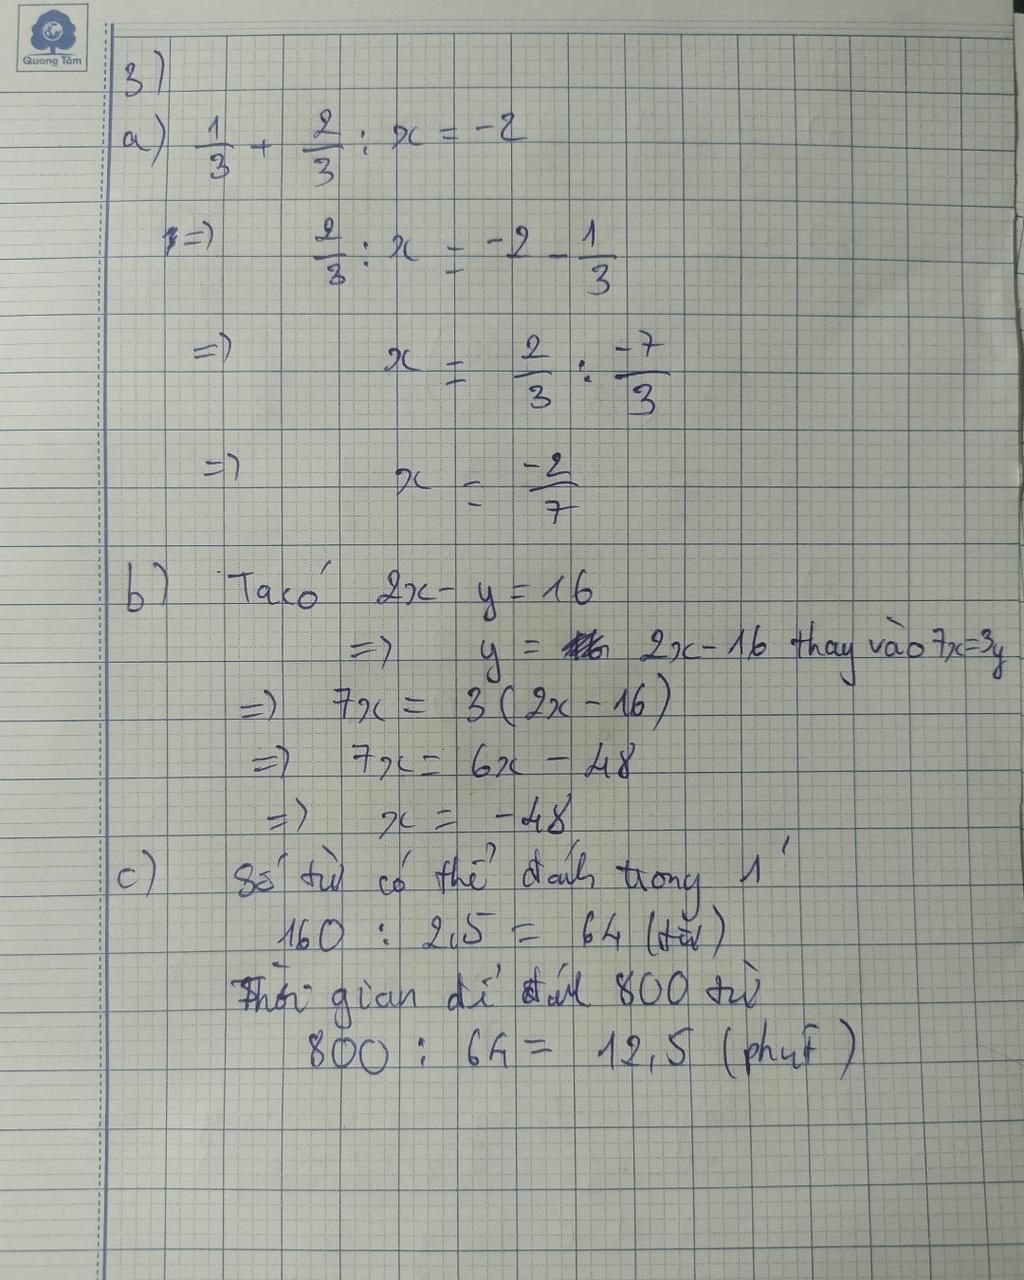 Quang Tâm
3)
a) 1/3 + 2/3 : x = -2
=> 2/3 : x = -2 - 1/3
=> x = 2/3 : -7/3
=> x = -2/7
b) Ta có 2x - y = 16
=> y = 2x - 16 thay vào 7x=3y
=> 7x = 3(2x - 16)
=> 7x = 6x - 48
=> x = -48
c) Số từ có thể đánh trong 1'
160 : 2,5 = 64 (từ)
Thời gian để đánh 800 từ
800 : 64 = 12,5 (phút)